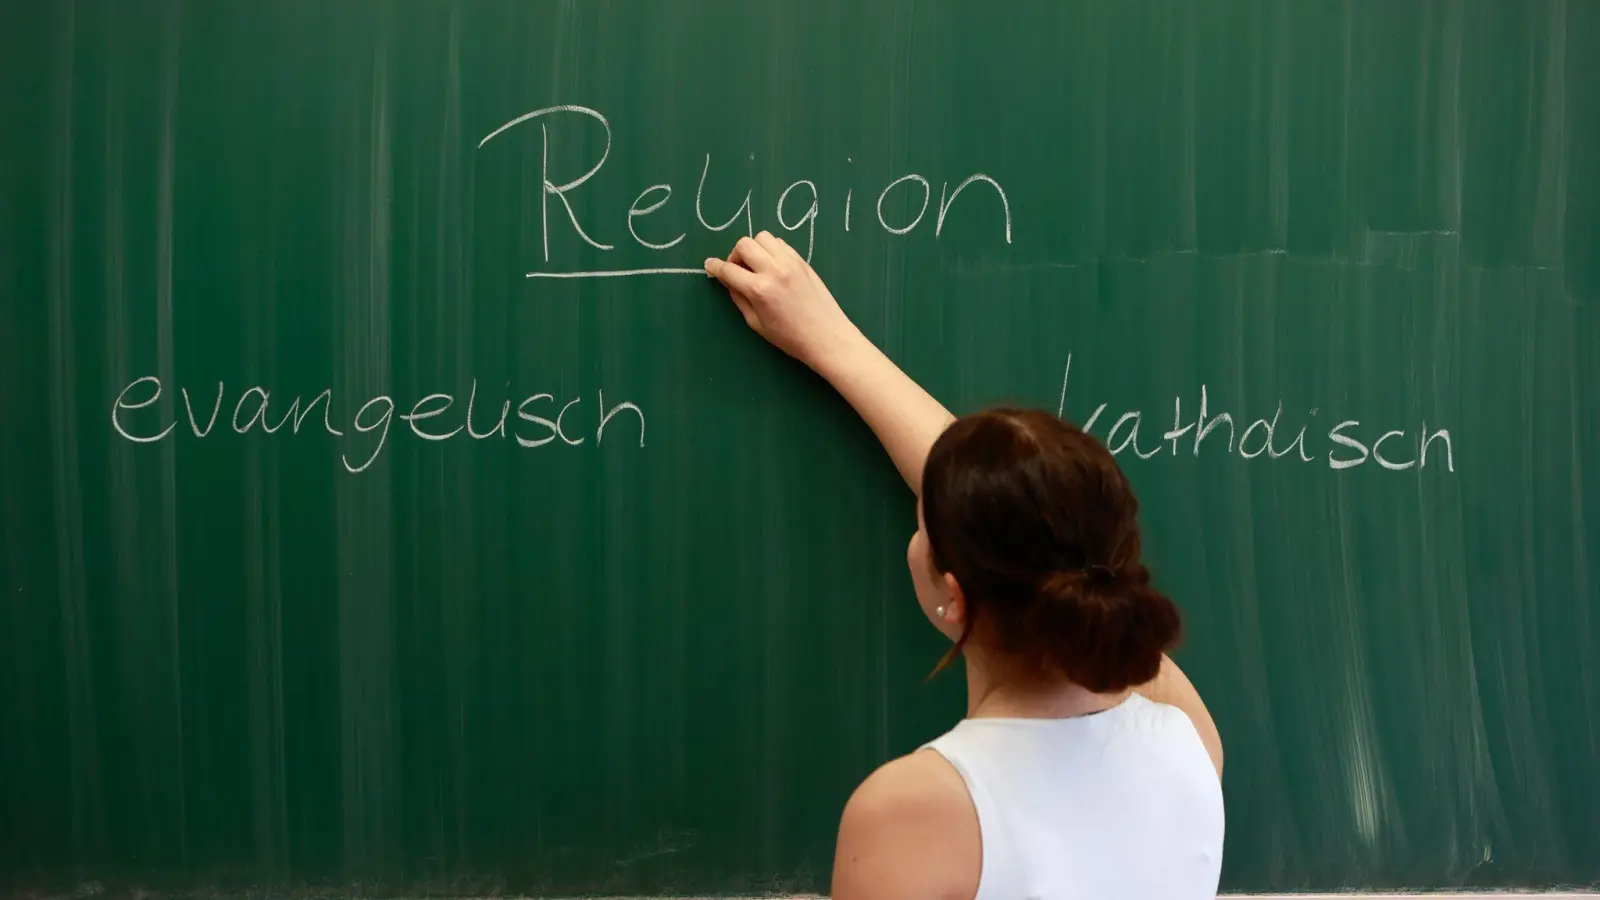 Religion
evangelisch
kathdisch